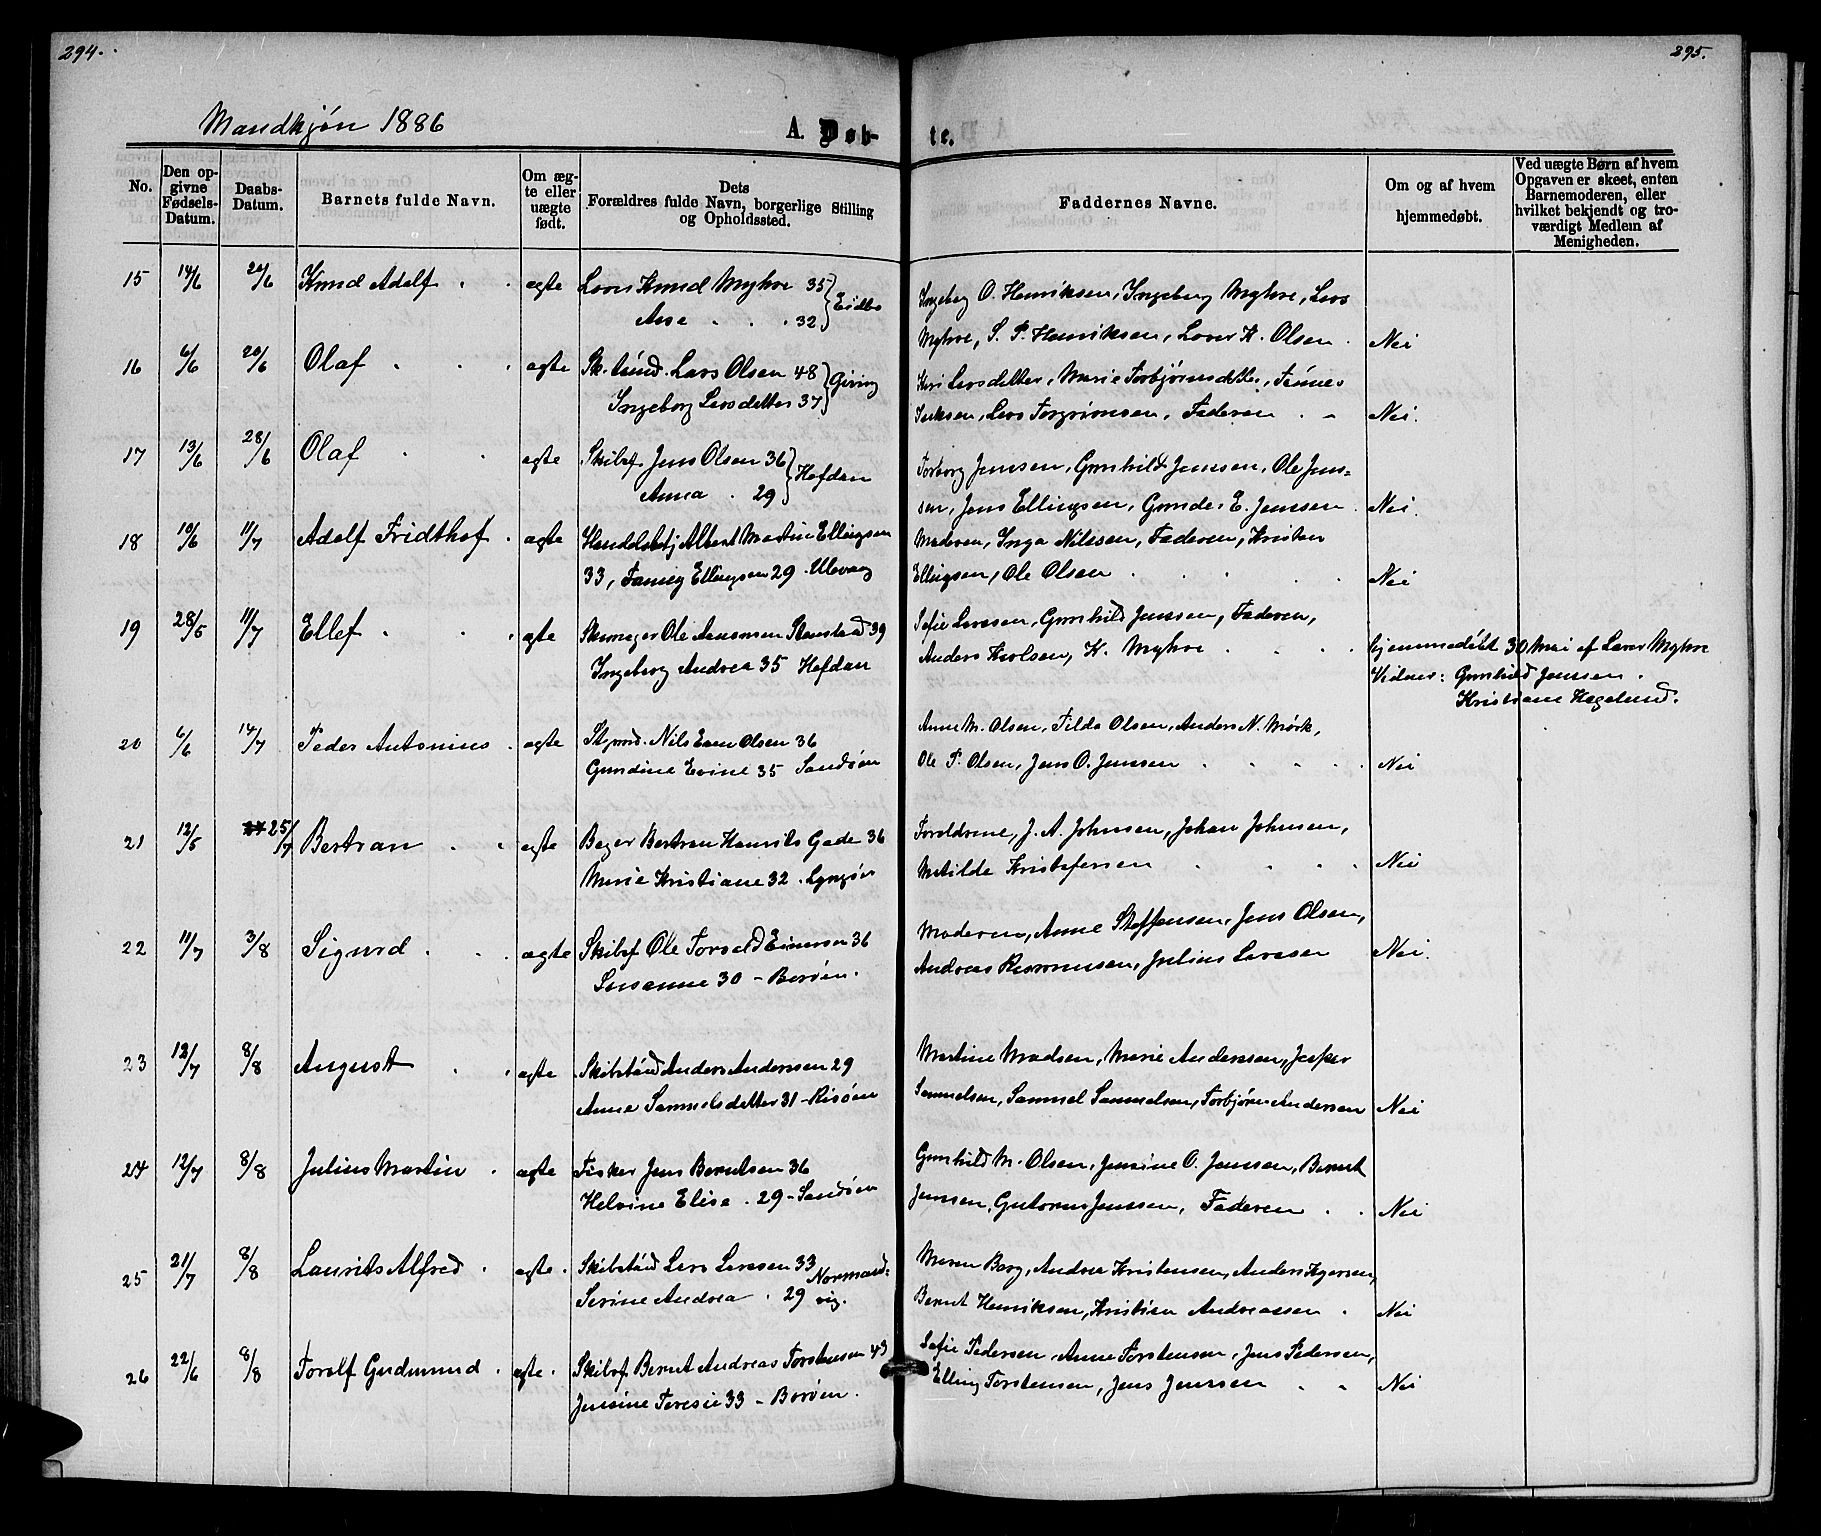 294.
295.
Mandkjøn 1886
A. Døb-
te.
No.
Den op-
givne
Fødsels-
Datum.
Daabs-
Datum.
Barnets fulde Navn.
Om æg-
te eller
uægte
født.
Dets
Forældres fulde Navn, borgerlige Stilling
og Opholdssted.
Faddernes Navne.
Om og af hvem
hjemmedøbt.
Ved uægte Børn af hvem
Opgaven er skeet, enten
Barnemoderen, eller
hvilket bekjendt og tro-
værdigt Medlem af
Menigheden.
15 14/6 Knud Adolf ægte Knud Myhre 35
32 Eidbo
Ingeborg O. Henriksen, Ingeborg Myhre, Lars
Myhre, S. P. Henriksen, K. Olsen Nei
16 6/6 20/6 Olaf ægte Lars Olsen 48
Ingeborg Larsdatter 37 Giving
Kari Larsdatter, Marie Torbjørnsdatter,
Lars Torgrimsen, Faderen Nei
17 13/6 28/6 Olaf ægte Skibsf. Jens Olsen 36
Anna 29 Hofdan
Torborg Jenssen, Gunhild Jenssen, Ole Jens-
sen, Jens Ellingsen, E. Jenssen Nei.
18 10/6 11/7 Adolf Fridthof ægte Albert Martin Ellingsen
33, Fanny Ellingsen 29
Moderen, Inga Nilssen, Faderen, Kristen
Ellingsen, Ole Olsen Nei
19 28/5 11/7 Ellef ægte Skomager Ole 39
Ingeborg Andrea 35 Hofdan
Sofie Larssen, Gunhild Jenssen, Faderen,
Anders Karlsen, K. Myhre
hjemmedøbt 30 Mai af Myhre
Vidner: Gunhild Jenssen
Kristiane Hagelund.
20 6/6 14/7 Peder Antonius ægte Nils Olsen 36
Gundine Evine 35 Sandøen
Anne M. Olsen, Tilda Olsen, Anders N. Mørk,
Ole P. Olsen, Jens O. Jenssen Nei
21 12/5 25/7 Bertran ægte Bager Bertran Henrik Gade 36
Marie Kristiane 32 Lyngør
Forældrene, J. A. Johnsen, Johan Johnsen,
Matilde Kristofersen Nei
22 11/7 3/8 Sigurd ægte Skibsf Ole Torvald Einersen 36
Susanne 30 - Borøen.
Moderen, Anne Steffensen, Jens Olsen,
Andreas Rasmussen, Julius Larssen Nei.
23 12/7 8/8 August ægte Anders Anderssen 29
Anne Samuelsdatter 31 - Risøen
Martine Madsen, Marie Anderssen, Jesper
Samuelsen, Samuel Samuelsen, Torbjørn Andersen Nei
24 12/7 8/8 Julius Martin ægte Fisker Jens Berntsen 36
Helvine Elise 29 - Sandøen
Gunhild M. Olsen, Jensine O. Jenssen, Bernt
Jenssen, Jenssen, Faderen Nei
25 21/7 8/8 Laurits Alfred ægte Lars Larssen 33
Serine Andrea 29 Normand-
vig.
Maren Berg, Andrea Kristensen, Anders
Bernt Henriksen, Kristian Andreassen Nei
26 22/6 8/8 Torolf Gudmund ægte Skibsf Bernt Andreas Torstensen 43
Jensine Teresie 33 - Borøen.
Sofie Pedersen, Anne Torstensen, Jens Pedersen,
Elling Torstensen, Jens Jenssen Nei